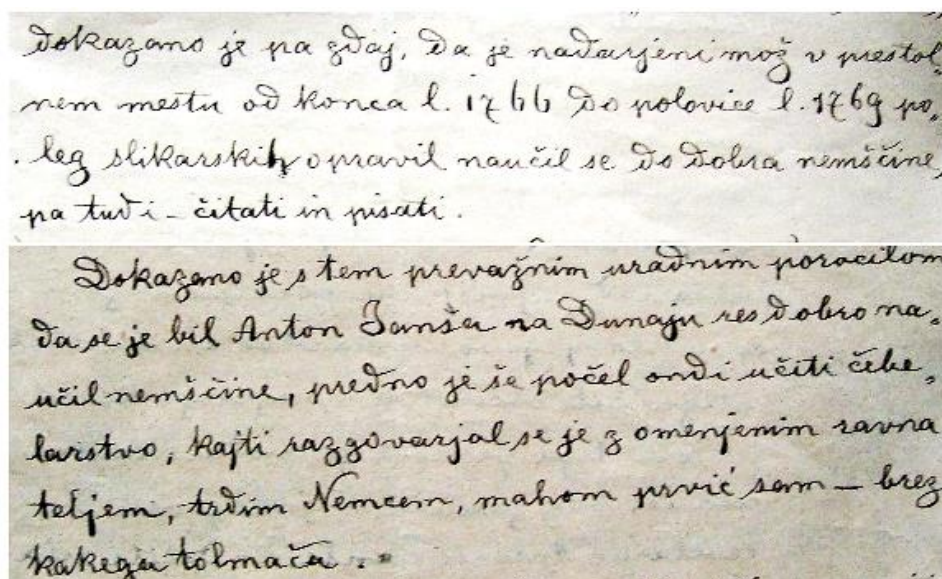 dokazano je pa zdaj, da je nadarjeni mož v prestol-
nem mestu od konca l. 1766 do polovice l. 1769 po-
leg slikarskih opravil naučil se do dobra nemščine,
pa tudi – čitati in pisati.
Dokazano je s tem prevažnim uradnim poročilom
da se je bil Anton Janša na Dunaju res dobro na-
učil nemščine, predno je še počel ondi učiti čebe-
larstvo, kajti razgovarjal se je z omenjenim ravna
teljem, trdim Nemcem, mahom prvič sam – brez
kakega tolmača.